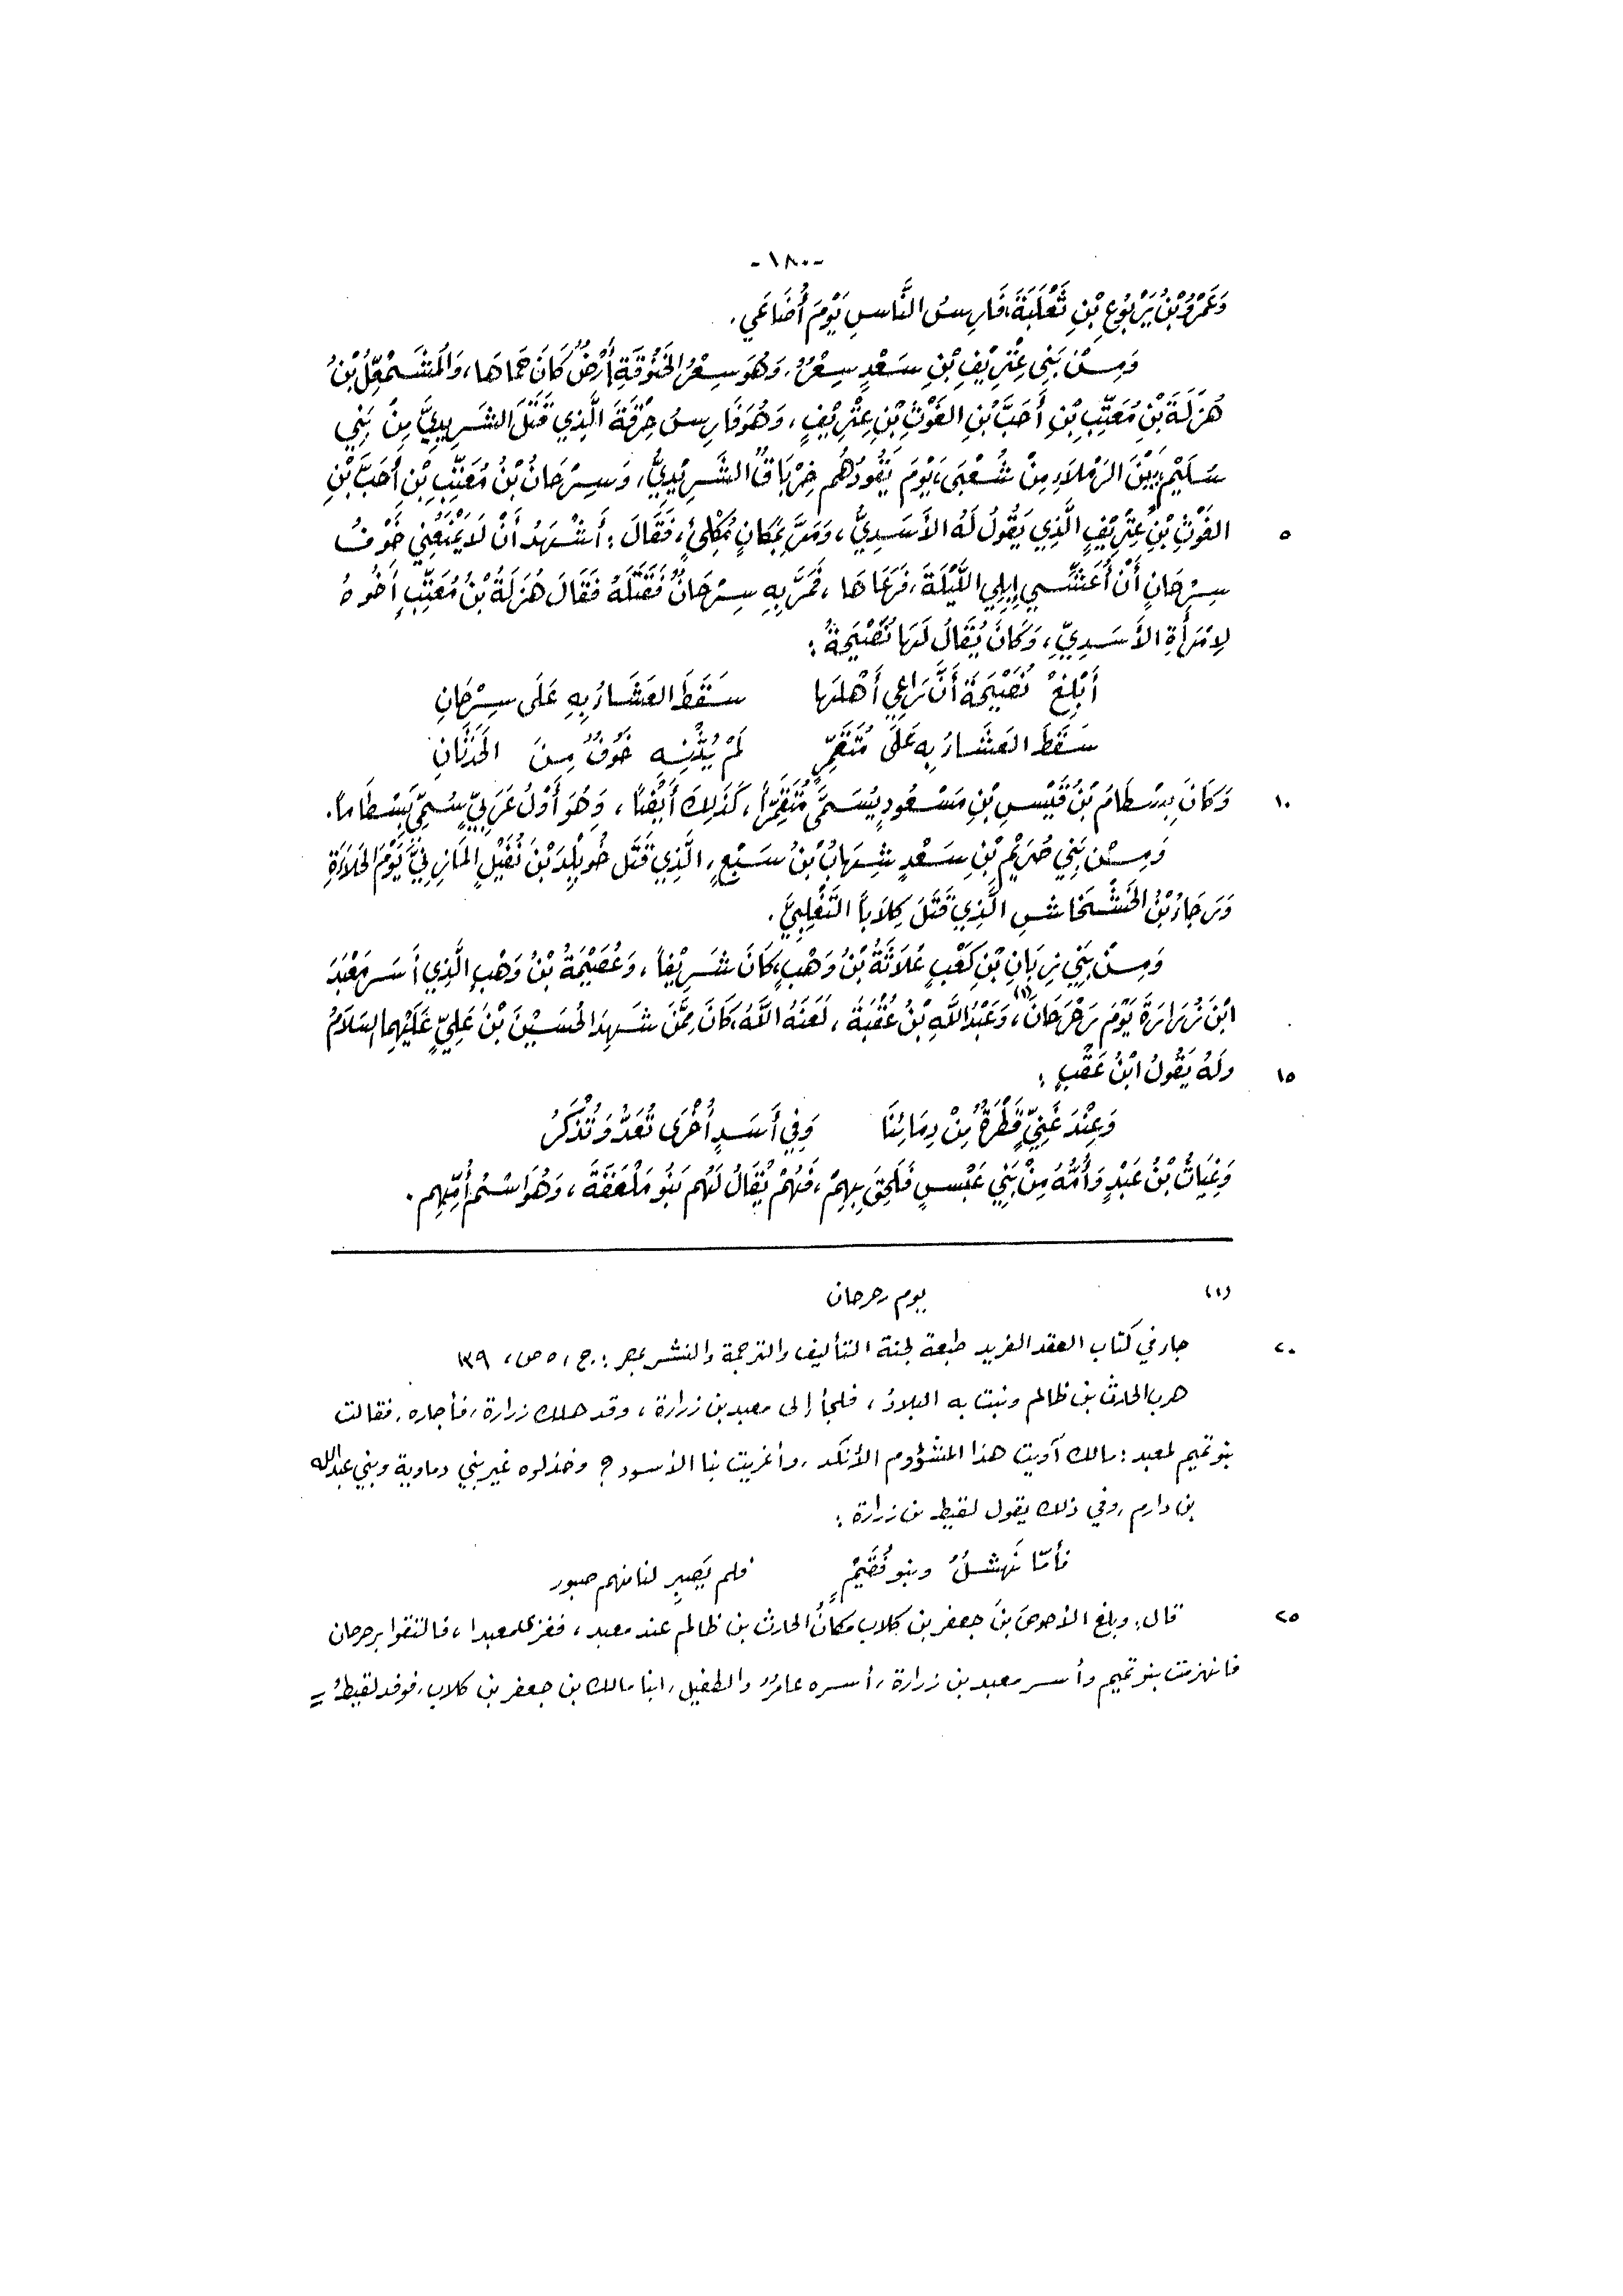 -١٨٠-
وَعَمْرُو بْنُ يَرْبُوعِ بْنِ ثَعْلَبَةَ، فَارِسُ النَّاسِ يَوْمَ أُضَاعَي.
وَمِنْ بَنِي عِتْرِيفِ بْنِ سَعْدٍ سِعْرٌ، وَهُوَ سِعْرُ الخَنُوقَةِ أَرْضٌ كَانَ حَمَاهَا، وَالمُشْمَعِلُّ بْنُ
هُزَلَةَ بْنِ مُعَتِّبِ بْنِ أَحَبَّ بْنِ الغَوْثِ بْنِ عِتْرِيفٍ، وَهُوَ فَارِسُ حِزْقَةَ الَّذِي قَتَلَ الشَّرِيدِيَّ مِنْ بَنِي
سُلَيْمٍ بَيْنَ الرَّمْلَاءِ مِنْ شُعْبَى، يَوْمَ يَقُودُهُم خِرْبَاقٌ الشَّرِيْدِيُّ، وَسِرْحَانُ بْنُ مُعَتِّبِ بْنِ أَحَبَّ بْنِ
٥ الغَوْثِ بْنِ عِتْرِيفٍ الَّذِي يَقُولُ لَهُ الأَسَدِيُّ، وَمَرَّ بِمَكَانٍ مُكْلِئٍ، فَقَالَ: أَشْهَدُ أَنْ لَا يَمْنَعُنِي خَوْفُ
سِرْحَانٍ أَنْ أُعَشِّيَ إِبِلِي اللَّيْلَةَ، فَرَعَاهَا، فَمَرَّ بِهِ سِرْحَانٌ فَقَتَلَهُ فَقَالَ هُزَلَةُ بْنُ مُعَتِّبٍ أَخُوهُ
لِامْرَأَةِ الأَسَدِيِّ، وَكَانَ يُقَالُ لَهَا نُصَيْحَةُ:
أَبْلِغْ نُصَيْحَةَ أَنَّ رَاعِي أَهْلِهَا سَقَطَ العَشَاءُ بِهِ عَلَى سِرْحَانِ
سَقَطَ العَشَاءُ بِهِ عَلَى مُتَقَمِّرٍ لَمْ يُثْنِهِ خَوْفٌ مِنَ الحَدَثَانِ
١٠ وَكَانَ بِسْطَامُ بْنُ قَيْسِ بْنِ مَسْعُودٍ يُسَمَّى مُتَقَمِّراً، كَذَلِكَ أَيْضاً، وَهُوَ أَوَّلُ عَرَبِيٍّ سُمِّيَ بِسْطَاماً.
وَمِنْ بَنِي ضَرِيمِ بْنِ سَعْدٍ شِهَابُ بْنُ سَبْعٍ، الَّذِي قَتَلَ خُوَيْلِدَ بْنَ نُفَيْلٍ المَازِنِيَّ يَوْمَ الحَلَاءَةِ
وَرَجَاءُ بْنُ الخَشْخَاشِ الَّذِي قَتَلَ كِلَاباً التَّغْلِبِيَّ.
وَمِنْ بَنِي زِبَانِ بْنِ كَعْبٍ عُلَاثَةُ بْنُ وَهْبٍ، كَانَ شَرِيْفاً، وَعُصَيْمَةُ بْنُ وَهْبٍ الَّذِي أَسَرَ مَعْبَدَ
ابْنَ زُرَارَةَ يَوْمَ رَحْرَحَانَ(١)، وَعَبْدُ اللَّهِ بْنُ عُقْبَةَ، لَعَنَهُ اللَّهُ، كَانَ مِمَّنْ شَهِدَ الحُسَيْنَ بْنَ عَلِيٍّ عَلَيْهِمَا السَّلَامُ
١٥ وَلَهُ يَقُولُ ابْنُ عَقْبٍ:
وَعِنْدَ غَنِيٍّ قَطْرَةٌ مِنْ دِمَائِنَا وَفِي أَسَدٍ أُخْرَى تُعَدُّ وَتُذْكَرُ
وَغِيَاثُ بْنُ عَبْدٍ وَأُمُّهُ مِنْ بَنِي عَبْسٍ فَلَحِقَ بِهِمْ، فَهُمْ يُقَالُ لَهُم بَنُو مَلْعَقَةَ، وَهُوَ اسْمُ أُمِّهِم.
(١) يوم رحرحان
٢٠ جاء في كتاب العقد الفريد طبعة لجنة التأليف والترجمة والنشر بمصر: ج، ٥ ص، ١٣٩
هرب الحارث بن ظالم ونبت به البلاد، فلجأ إلى معبد بن زرارة، وقد هلك زرارة، فأجاره، فقالت
بنو تميم لمعبد: مالك آويت هذا المشؤوم الأنكد، وأغريت بنا الأسود؟ وخذلوه غير بني دماوية وبني عبدالله
بن دارم، وفي ذلك يقول لقيط بن زرارة:
فأمّا نَهشلٌ وبنو فُقَيْمٍ فلم يَصبِر لنا منهم صبور
٢٥ قال: وبلغ الأحوصَ بنَ جعفر بن كلاب مكانُ الحارث بن ظالم عند معبد، فغزى معبدا، فالتقوا برحرحان
فانهزمت بنو تميم وأسر معبد بن زرارة، أسره عامرٌ والطفيل، ابنا مالك بن جعفر بن كلاب، فوفد لقيطُ =